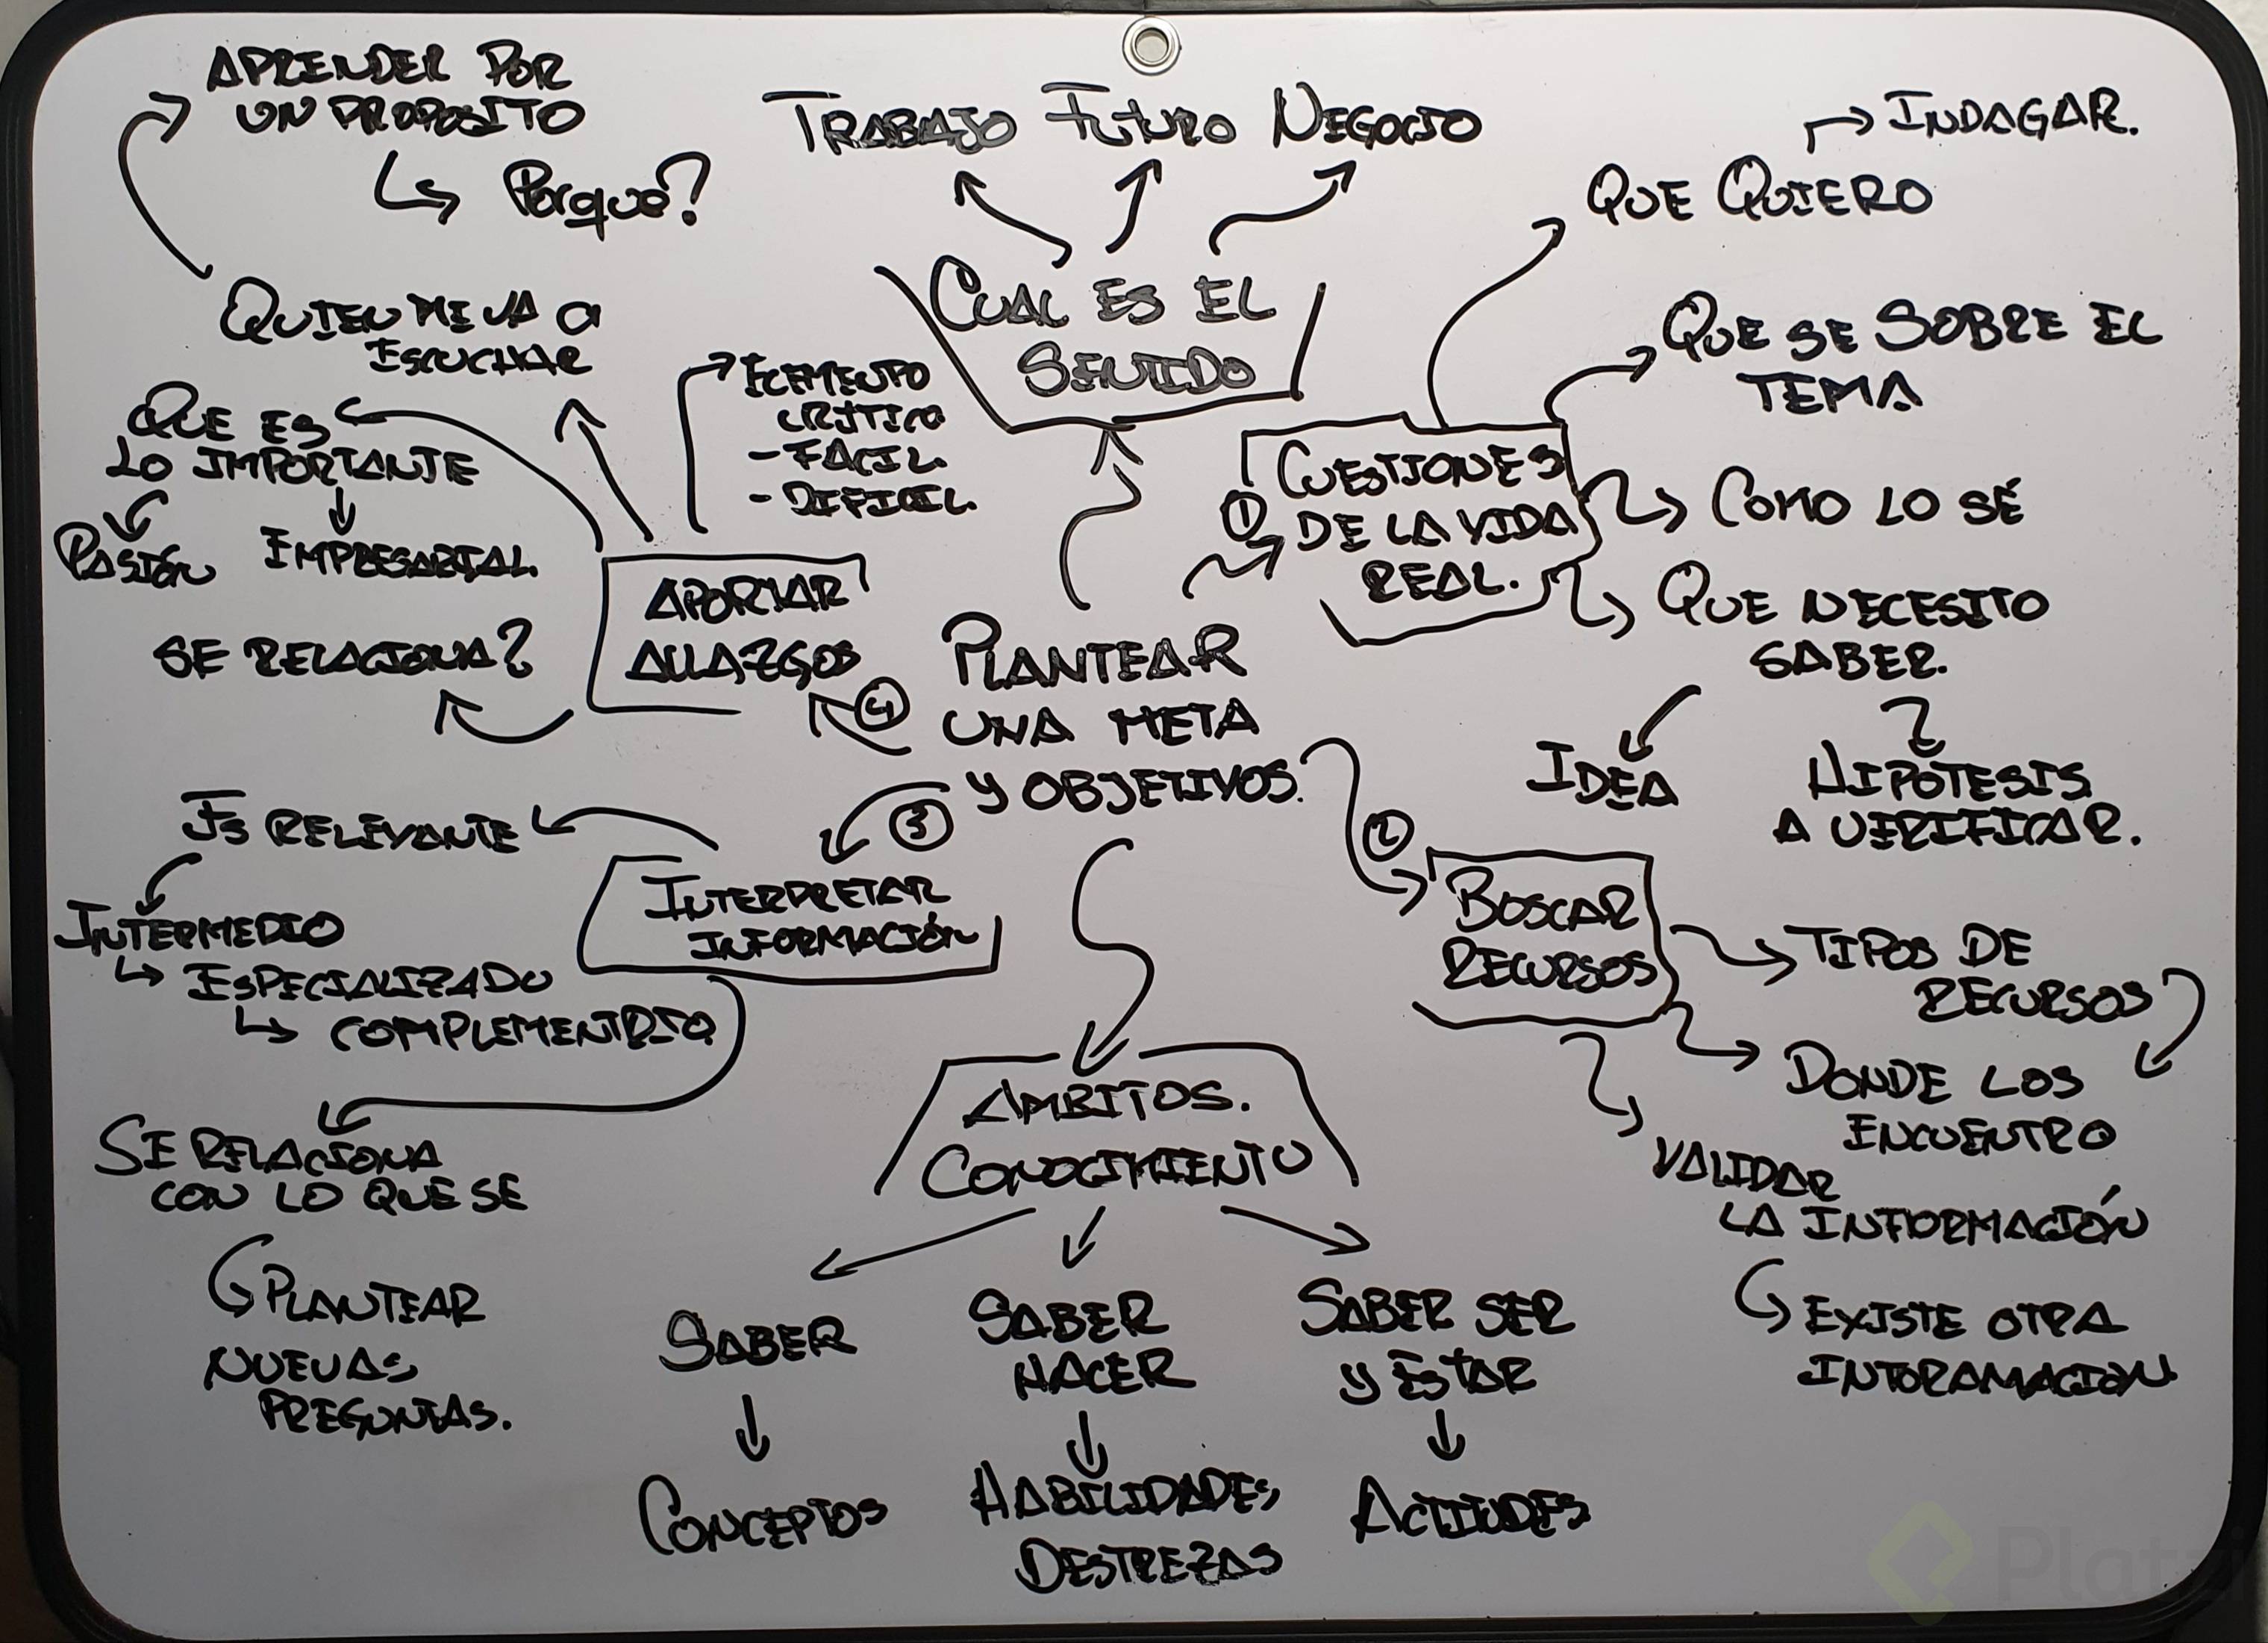 APRENDER POR
UN PROPOSITO
Porque?
TRABAJO FUTURO NEGOCIO
INDAGAR.
QUE QUIERO
CUAL ES EL
SENTIDO
QUIEN ME VA A
ESCUCHAR
QUE ES
LO IMPORTANTE
PASIÓN
EMPRESARIAL.
SE RELACIONA?
ELEMENTO
CRITICO
- FACIL.
- DIFICIL.
APORTAR
ALLAZGOS
4
PLANTEAR
UNA META
Y OBJETIVOS.
1
CUESTIONES
DE LA VIDA
REAL.
QUE SE SOBRE EL
TEMA
COMO LO SÉ
QUE NECESITO
SABER.
IDEA
HIPÓTESIS
A VERIFICAR.
2
BUSCAR
RECURSOS
TIPOS DE
RECURSOS
DONDE LOS
ENCUENTRO
VALIDAR
LA INFORMACIÓN
EXISTE OTRA
INFORAMACION
3
INTERPRETAR
INFORMACIÓN
ES RELEVANTE
INTERMEDIO
ESPECIALIZADO
COMPLEMENTRIO
SE RELACIONA
CON LO QUE SE
PLANTEAR
NUEVAS
PREGUNTAS.
AMBITOS.
CONOCIMIENTO
SABER
CONCEPTOS
SABER
HACER
HABILIDADES,
DESTREZAS
SABER SER
Y ESTAR
ACTITUDES
Platzi